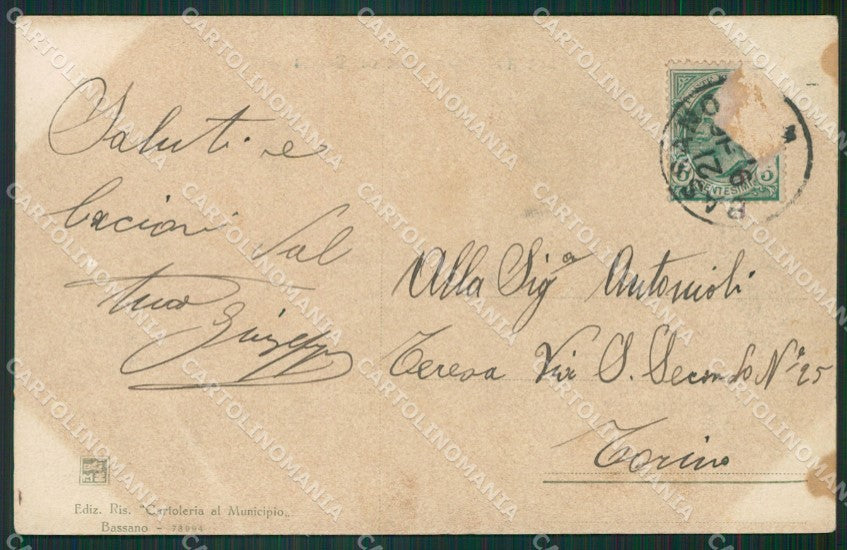 Saluti e
bacioni dal
tuo Giuseppe
Alla Sigª Antonioli
Teresa Via S. Secondo Nº 25
Torino
BASSANO
CENTESIMI 5
Ediz. Ris. "Cartoleria al Municipio„
Bassano - 73994
CARTOLINOMANIA